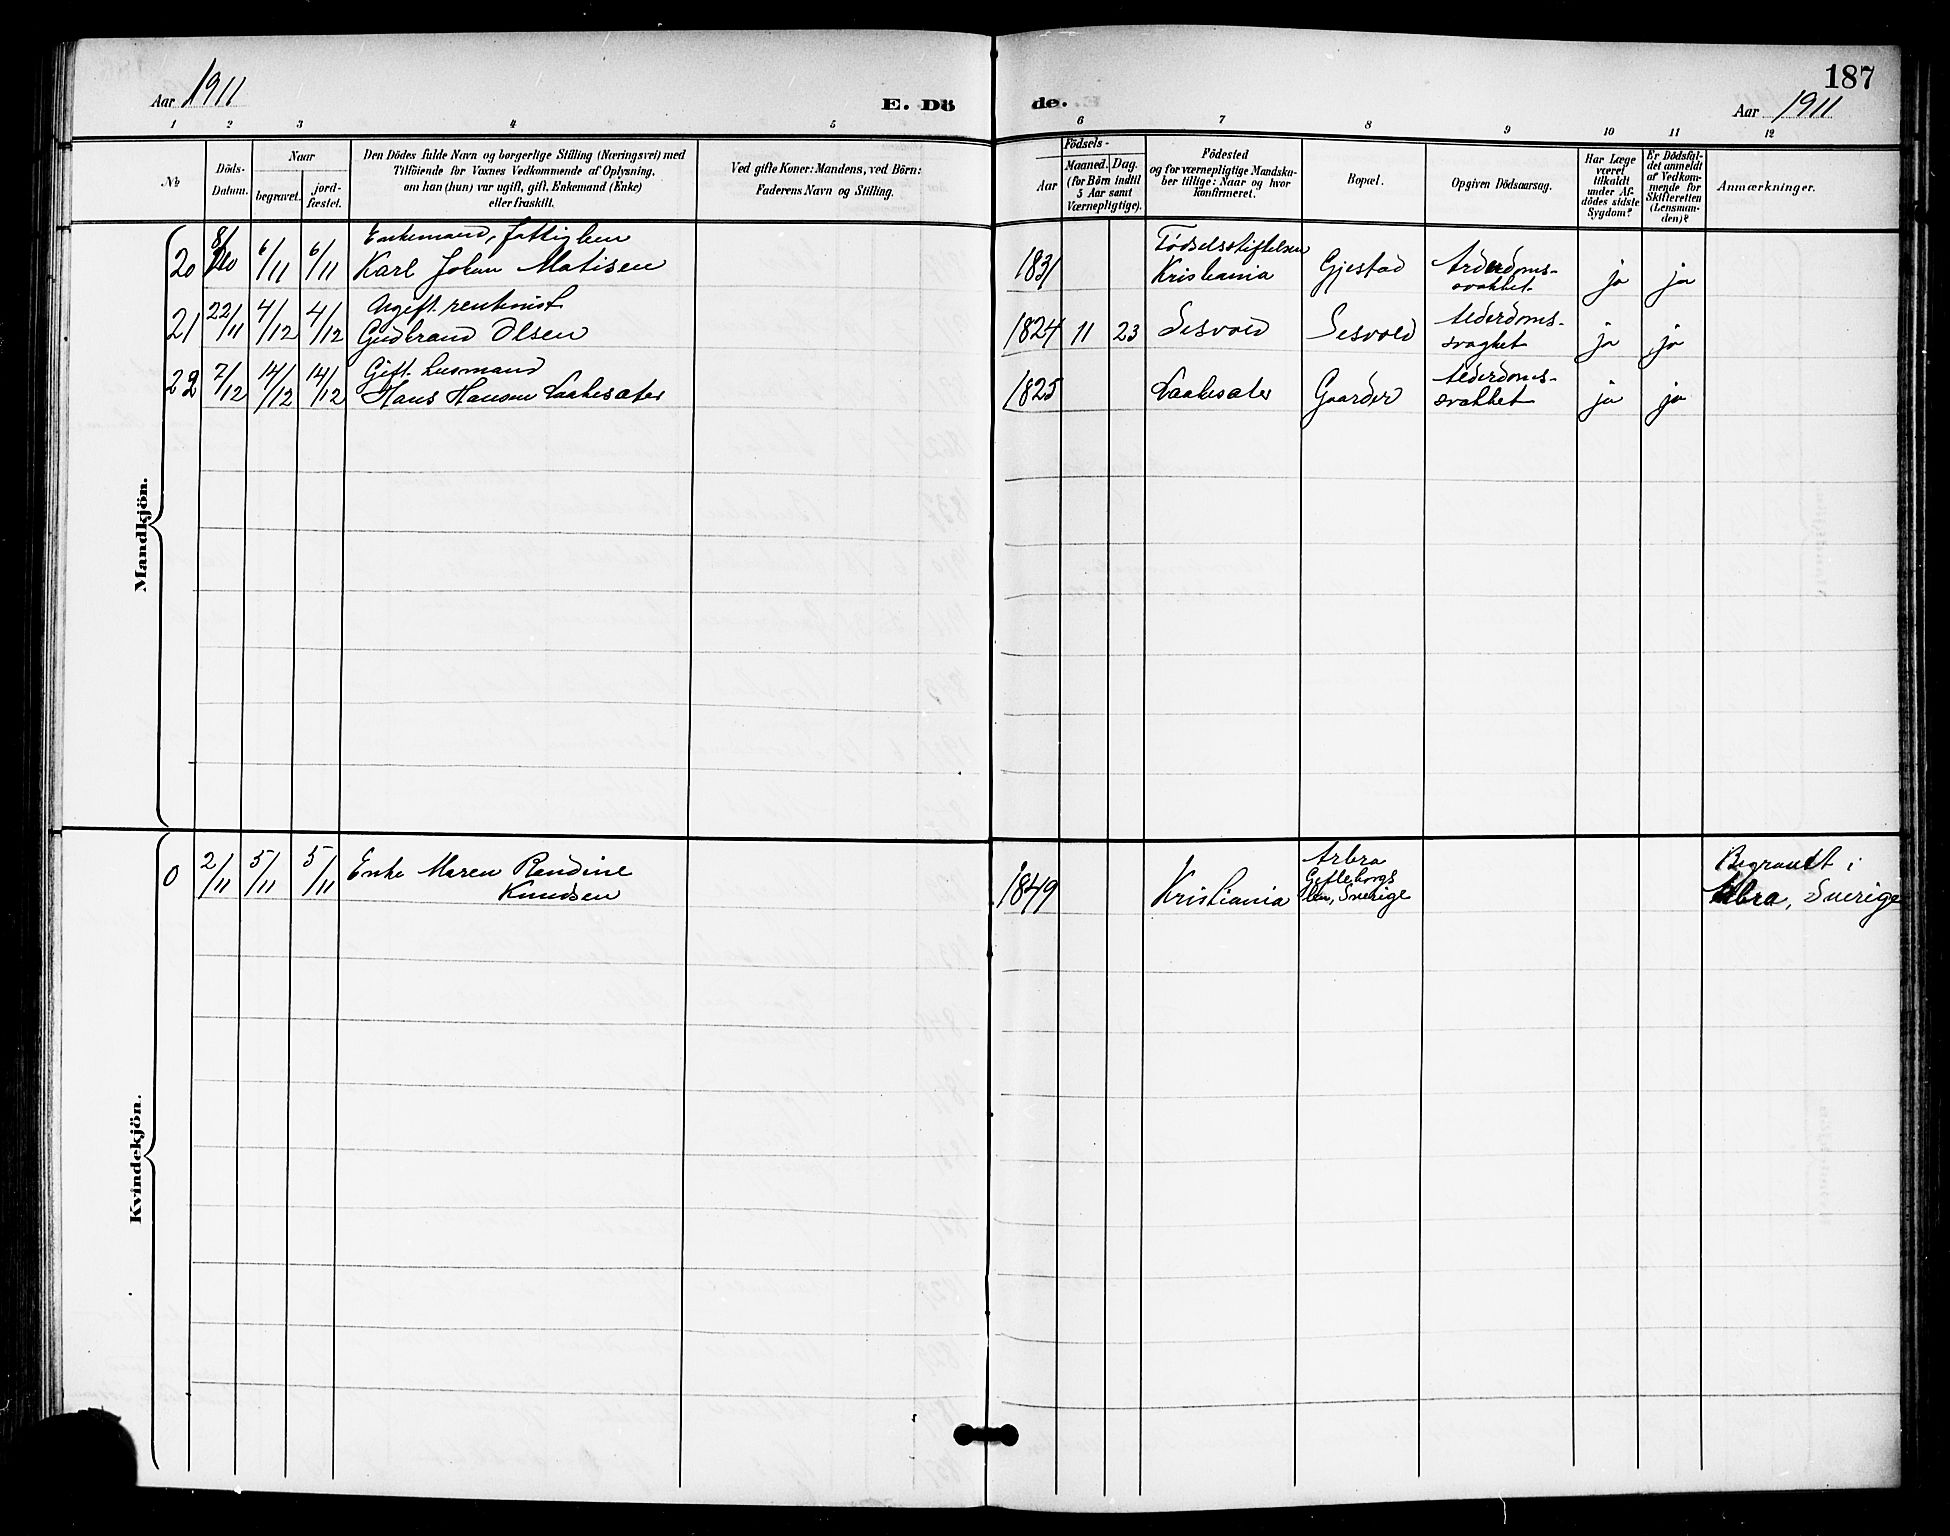 187
Aar 1911
E. Dö
de.
Aar 1911
1 2 3 4 5 6 7 8 9 10 11 12
No
Döds-
Datum.
Naar
begravet.
jord-
fæstet.
Den Dödes fulde Navn og borgerlige Stilling (Næringsvei) med
Tilföiende for Voxnes Vedkommende af Oplysning,
om han (hun) var ugift, gift, Enkemand (Enke)
eller fraskilt.
Ved gifte Koner: Mandens, ved Börn:
Faderens Navn og Stilling.
Födsels-
Aar
Maaned. Dag.
(for Börn indtil
5 Aar samt
Værnepligtige).
Födested
og for værnepligtige Mandska-
ber tillige: Naar og hvor
konfirmeret.
Bopæl.
Opgiven Dödsaarsag.
Har Læge
været
tilkaldt
under Af-
dödes sidste
Sygdom?
Er Dödsfal-
det anmeldt
af Vedkom-
mende for
Skifteretten
(Lensman-
den)?
Anmærkninger.
Mandkjön.
20 8/10 6/11 6/11
Enkemand, fattiglem
Karl Johan Matisen
1831
Födselsstiftelsen
Kristiania
Gjestad
svakhet
ja ja
21 22/11 4/12 4/12
Ugift rentenist
Gudbrand Olsen
1824 11 23 Sesvold Sesvold
Alderdoms-
svaghet
ja ja
22 7/12 14/12 14/12
Gift
Hans Hansen Laakesæter
1825 Laakesæter Gaarder
Alderdoms-
svakhet
ja ja
Kvindekjön.
0 2/11 5/11 5/11
Enke Maren Randine
Knudsen
1849 Kristiania
Arbra
Gefleborgs
len, Sverige
Begravet i
Arbra, Sverige